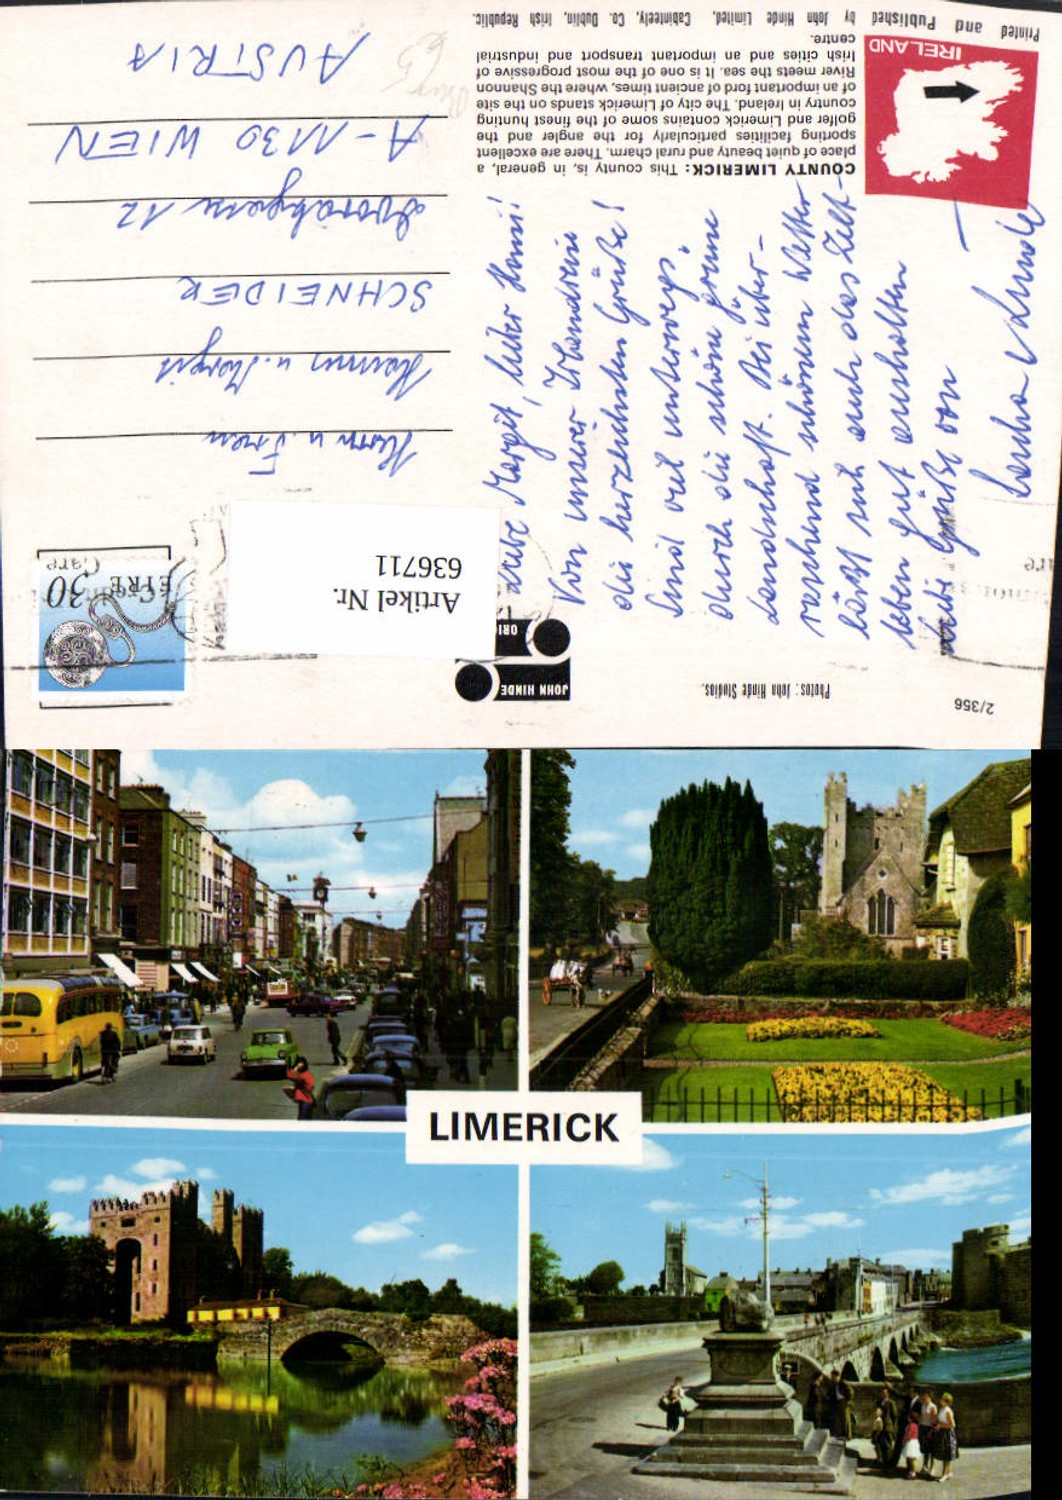 Printed and Published by John Hinde Limited, Cabinteely, Co. Dublin, Irish Republic.
IRELAND
COUNTY LIMERICK: This county is, in general, a
place of quiet beauty and rural charm. There are excellent
sporting facilities particularly for the angler and the
golfer and Limerick contains some of the finest hunting
country in Ireland. The city of Limerick stands on the site
of an important ford of ancient times, where the Shannon
River meets the sea. It is one of the most progressive of
Irish cities and an important transport and industrial
centre.
2/356
Photos: John Hinde Studios.
JOHN HINDE
ORI
Artikel Nr.
636711
EIRE 30
Liebe Margit, lieber Hanni!
Von unserer Irlandreise
die herzlichsten Grüße!
Sind viel unterwegs
durch die schöne grüne
Landschaft. Bei über-
raschend schönem Wetter
lässt sich auch das Zelt-
leben gut aushalten
Liebe Grüße von
Herrn u. Frau
Hannes u. Margit
SCHNEIDER
12
A-1130 WIEN
AUSTRIA
LIMERICK